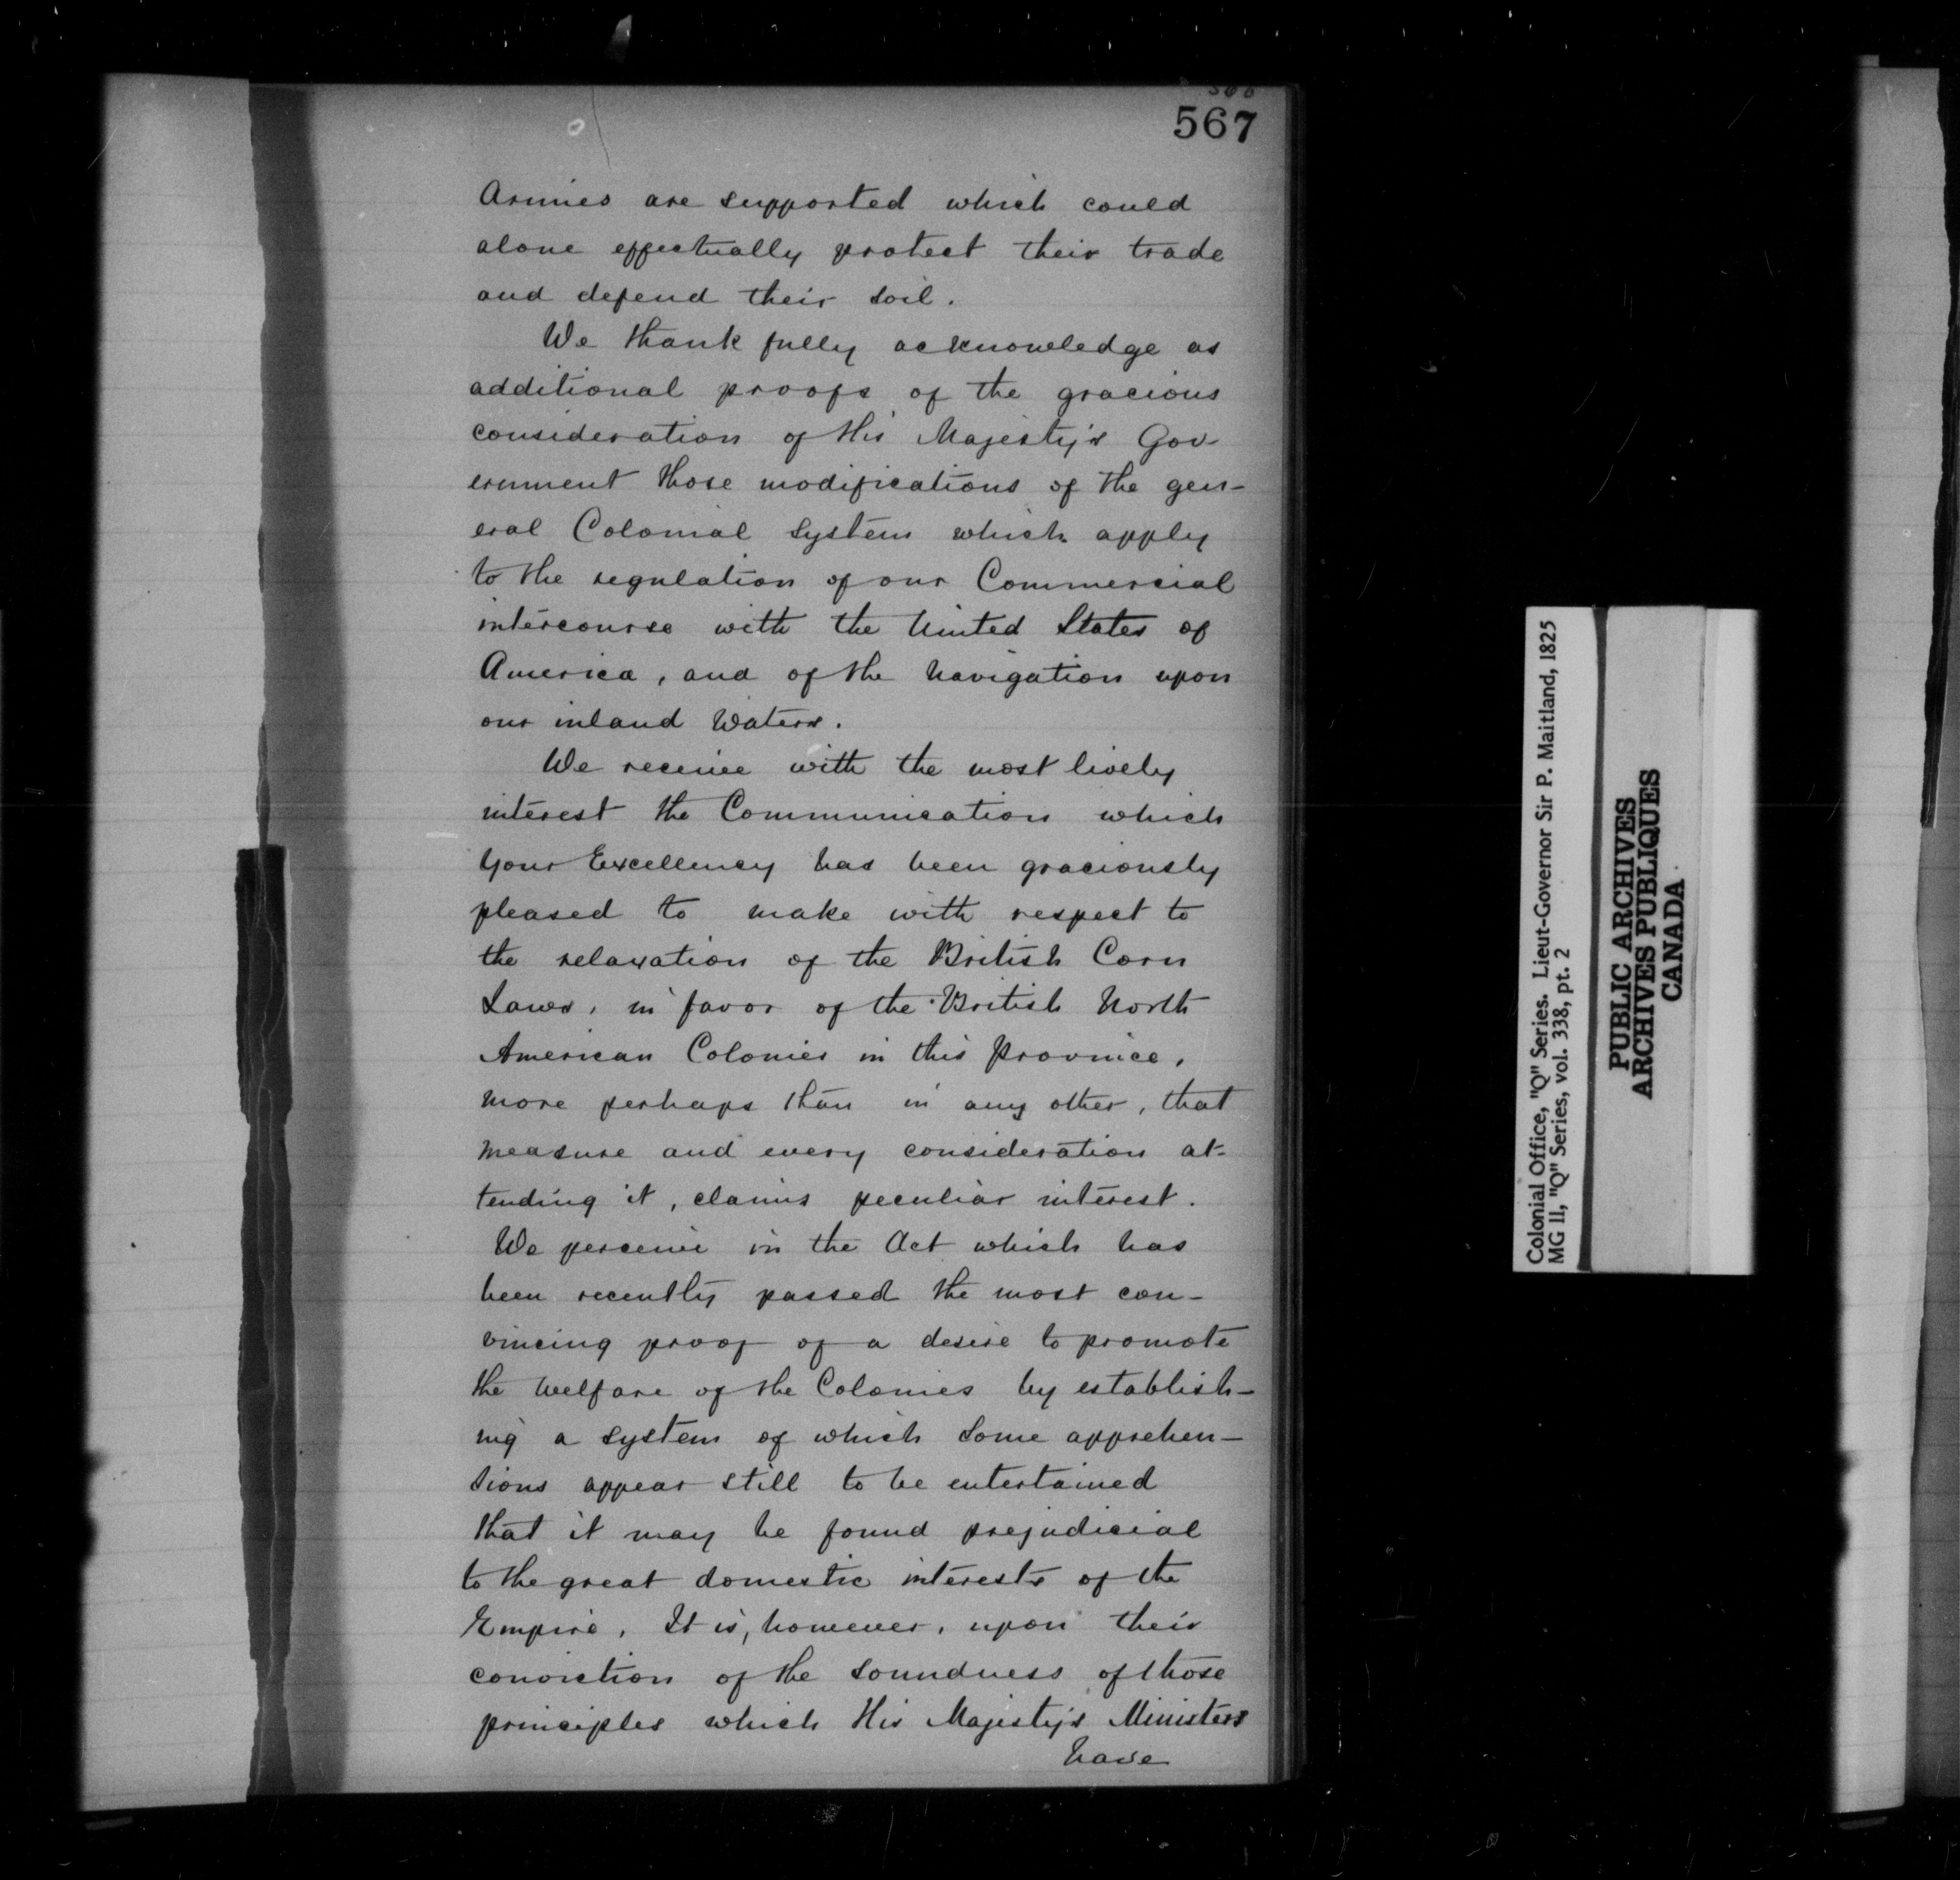 567
Armies are supported which could
alone effectually protect their trade
and defend their soil.
We thankfully acknowledge as
additional proofs of the gracious
consideration of His Majesty's Gov-
ernment those modifications of the gen-
eral Colonial system which apply
to the regulation of our Commercial
intercourse with the United States of
America, and of the navigation upon
our inland Waters.
We receive with the most lively
interest the Communication which
Your Excellency has been graciously
pleased to make with respect to
the relaxation of the British Corn
Laws, in favor of the British North
American Colonies in this Province,
more perhaps than in any other, that
measure and every consideration at-
tending it, claims peculiar interest.
We perceive in the Act which has
been recently passed the most con-
vincing proof of a desire to promote
the welfare of the Colonies by establish-
ing a system of which some apprehen-
sions appear still to be entertained
that it may be found prejudicial
to the great domestic interests of the
Empire. It is, however, upon their
conviction of the soundness of those
principles which His Majesty's Ministers
have
Colonial Office, "Q" Series. Lieut-Governor Sir P. Maitland, 1825
MG 11, "Q" Series, vol. 338, pt. 2
PUBLIC ARCHIVES
ARCHIVES PUBLIQUES
CANADA